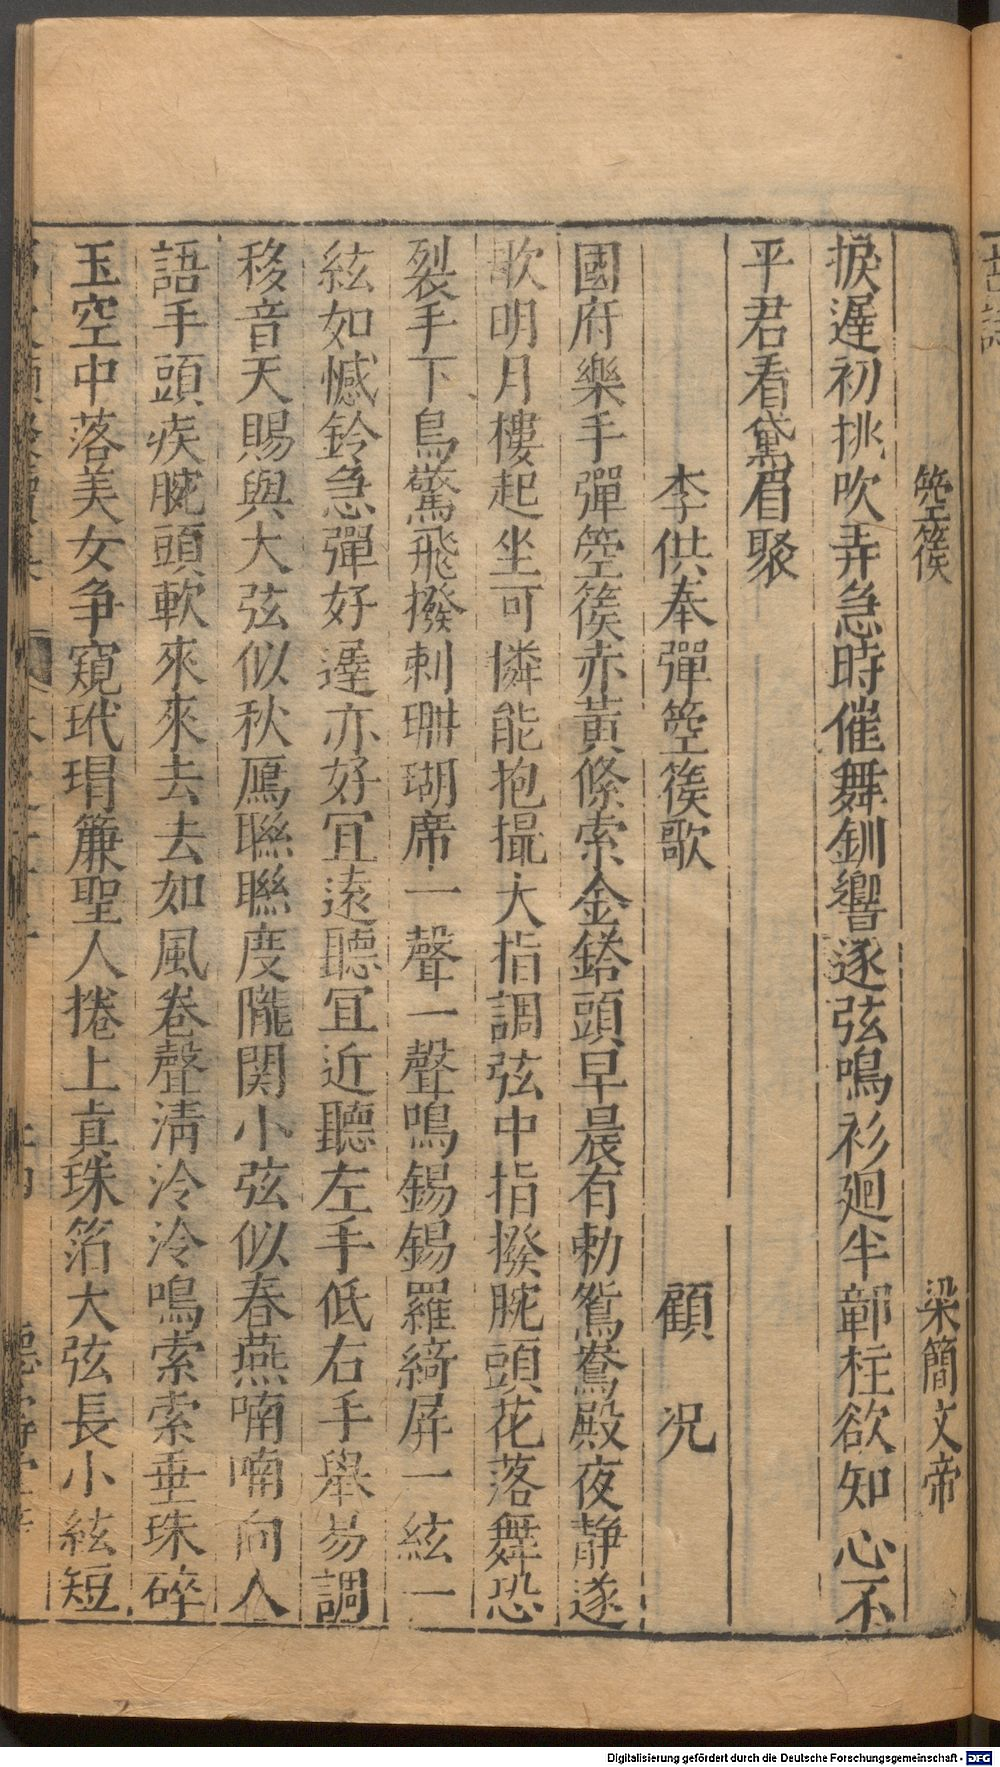 箜篌 梁簡文帝
捩遲初挑吹弄急時催舞釧響逐弦鳴衫廻半鄣柱欲知心不
平君看黛眉聚
李供奉彈箜篌歌 顧況
國府樂手彈箜篌赤黃絛索金鎝頭早晨有勅鴛鴦殿夜静遂
歌明月樓起坐可憐能抱撮大指調弦中指撥腕頭花落舞恐
裂手下鳥驚飛撥剌珊瑚席一聲一聲鳴錫錫羅綺屏一絃一
絃如憾鈴急彈好遲亦好冝遠聽冝近聽左手低右手舉易調
移音天賜與大弦似秋鴈聯聯度隴関小弦似春燕喃喃向人
語手頭疾腕頭軟來來去去如風卷聲清泠泠鳴索索垂珠碎
玉空中落美女争窺玳瑁簾聖人捲上真珠箔大弦長小絃短
Digitalisierung gefördert durch die Deutsche Forschungsgemeinschaft - DFG